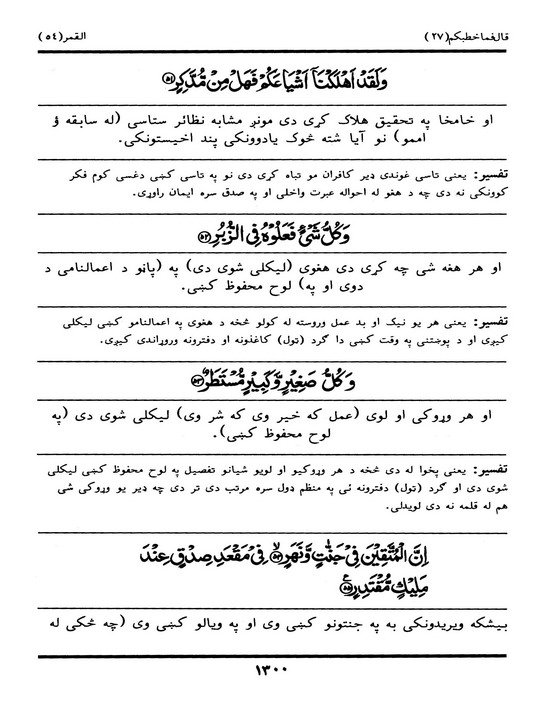 قال فما خطبكم (۲۷) القمر (۵٤)
وَلَقَدْ اَهْلَكْنَاۤ اَشْیَاعَكُمْ فَهَلْ مِنْ مُّدَّكِرٍ ﴿۵۱﴾
او خامخا په تحقیق هلاک کړی دی مونږ مشابه نظائر ستاسې (له سابقه ؤ
اممو) نو آیا شته څوک یادوونکی پند اخیستونکی.
تفسیر: یعنی تاسې غوندې ډیر کافران مو تباه کړی دی نو په تاسې کښې دغسې کوم فکر
کوونکی نه دی چه د هغو له احواله عبرت واخلی او په صدق سره ایمان راوړی.
وَكُلُّ شَیْءٍ فَعَلُوْهُ فِی الزُّبُرِ ﴿۵۲﴾
او هر هغه شی چه کړی دی هغوی (لیکلی شوی دی) په (پاڼو د اعمالنامې د
دوی او په) لوح محفوظ کښې.
تفسیر: یعنی هر یو نیک او بد عمل وروسته له کولو څخه د هغوی په اعمالنامو کښې لیکلی
کیږی او د پوښتنې په وقت کښې دا ګرد (ټول) کاغذونه او دفترونه وروړاندې کیږی.
وَكُلُّ صَغِیْرٍ وَّكَبِیْرٍ مُّسْتَطَرٌ ﴿۵۳﴾
او هر وړوکی او لوی (عمل که خیر وی که شر وی) لیکلی شوی دی (په
لوح محفوظ کښې).
تفسیر: یعنی پخوا له دې څخه د هر وړوکیو او لویو شیانو تفصیل په لوح محفوظ کښې لیکلی
شوی دی او ګرد (ټول) دفترونه ئې په منظم ډول سره مرتب دی تر دې چه ډیر یو وړوکی شی
هم له قلمه نه دی لویدلی.
اِنَّ الْمُتَّقِیْنَ فِیْ جَنّٰتٍ وَّنَهَرٍ ﴿۵٤﴾ فِیْ مَقْعَدِ صِدْقٍ عِنْدَ
مَلِیْكٍ مُّقْتَدِرٍ ﴿۵۵﴾
بیشکه ویریدونکی به په جنتونو کښې وی او په ویالو کښې وی (چه څکی له
۱۳۰۰